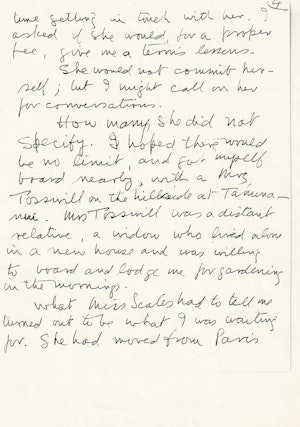 4
time getting in touch with her. I
asked if she would, for a proper
fee, give me a term's lessons.
She would not commit her-
self; but I might call on her
for conversations.
How many, she did not
specify. I hoped there would
be no limit, and got myself
board nearby, with a Mrs
Tosswill on the hillside at Tahuna-
nui. Mrs Tosswill was a distant
relative, a widow who lived alone
in a new house and was willing
to board and lodge me for gardening
in the mornings.
What Miss Scales had to tell me
turned out to be what I was waiting
for. She had moved from Paris